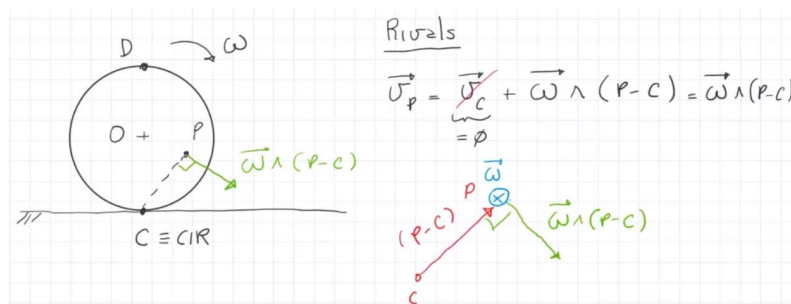 D
ω
O +
P
ω⃗ ∧ (P-C)
C ≡ CIR
Rivals
v⃗_P = v⃗_C + ω⃗ ∧ (P-C) = ω⃗ ∧ (P-C)
= ∅
ω⃗
P
(P-C)
ω⃗ ∧ (P-C)
C